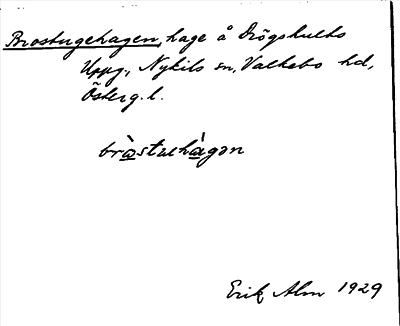 Brostugehagen, hage å Drögshults
Uppg., Nykils sn, Valkebo hd,
Österg. l.
bràstuehàgən
Erik Alm 1929